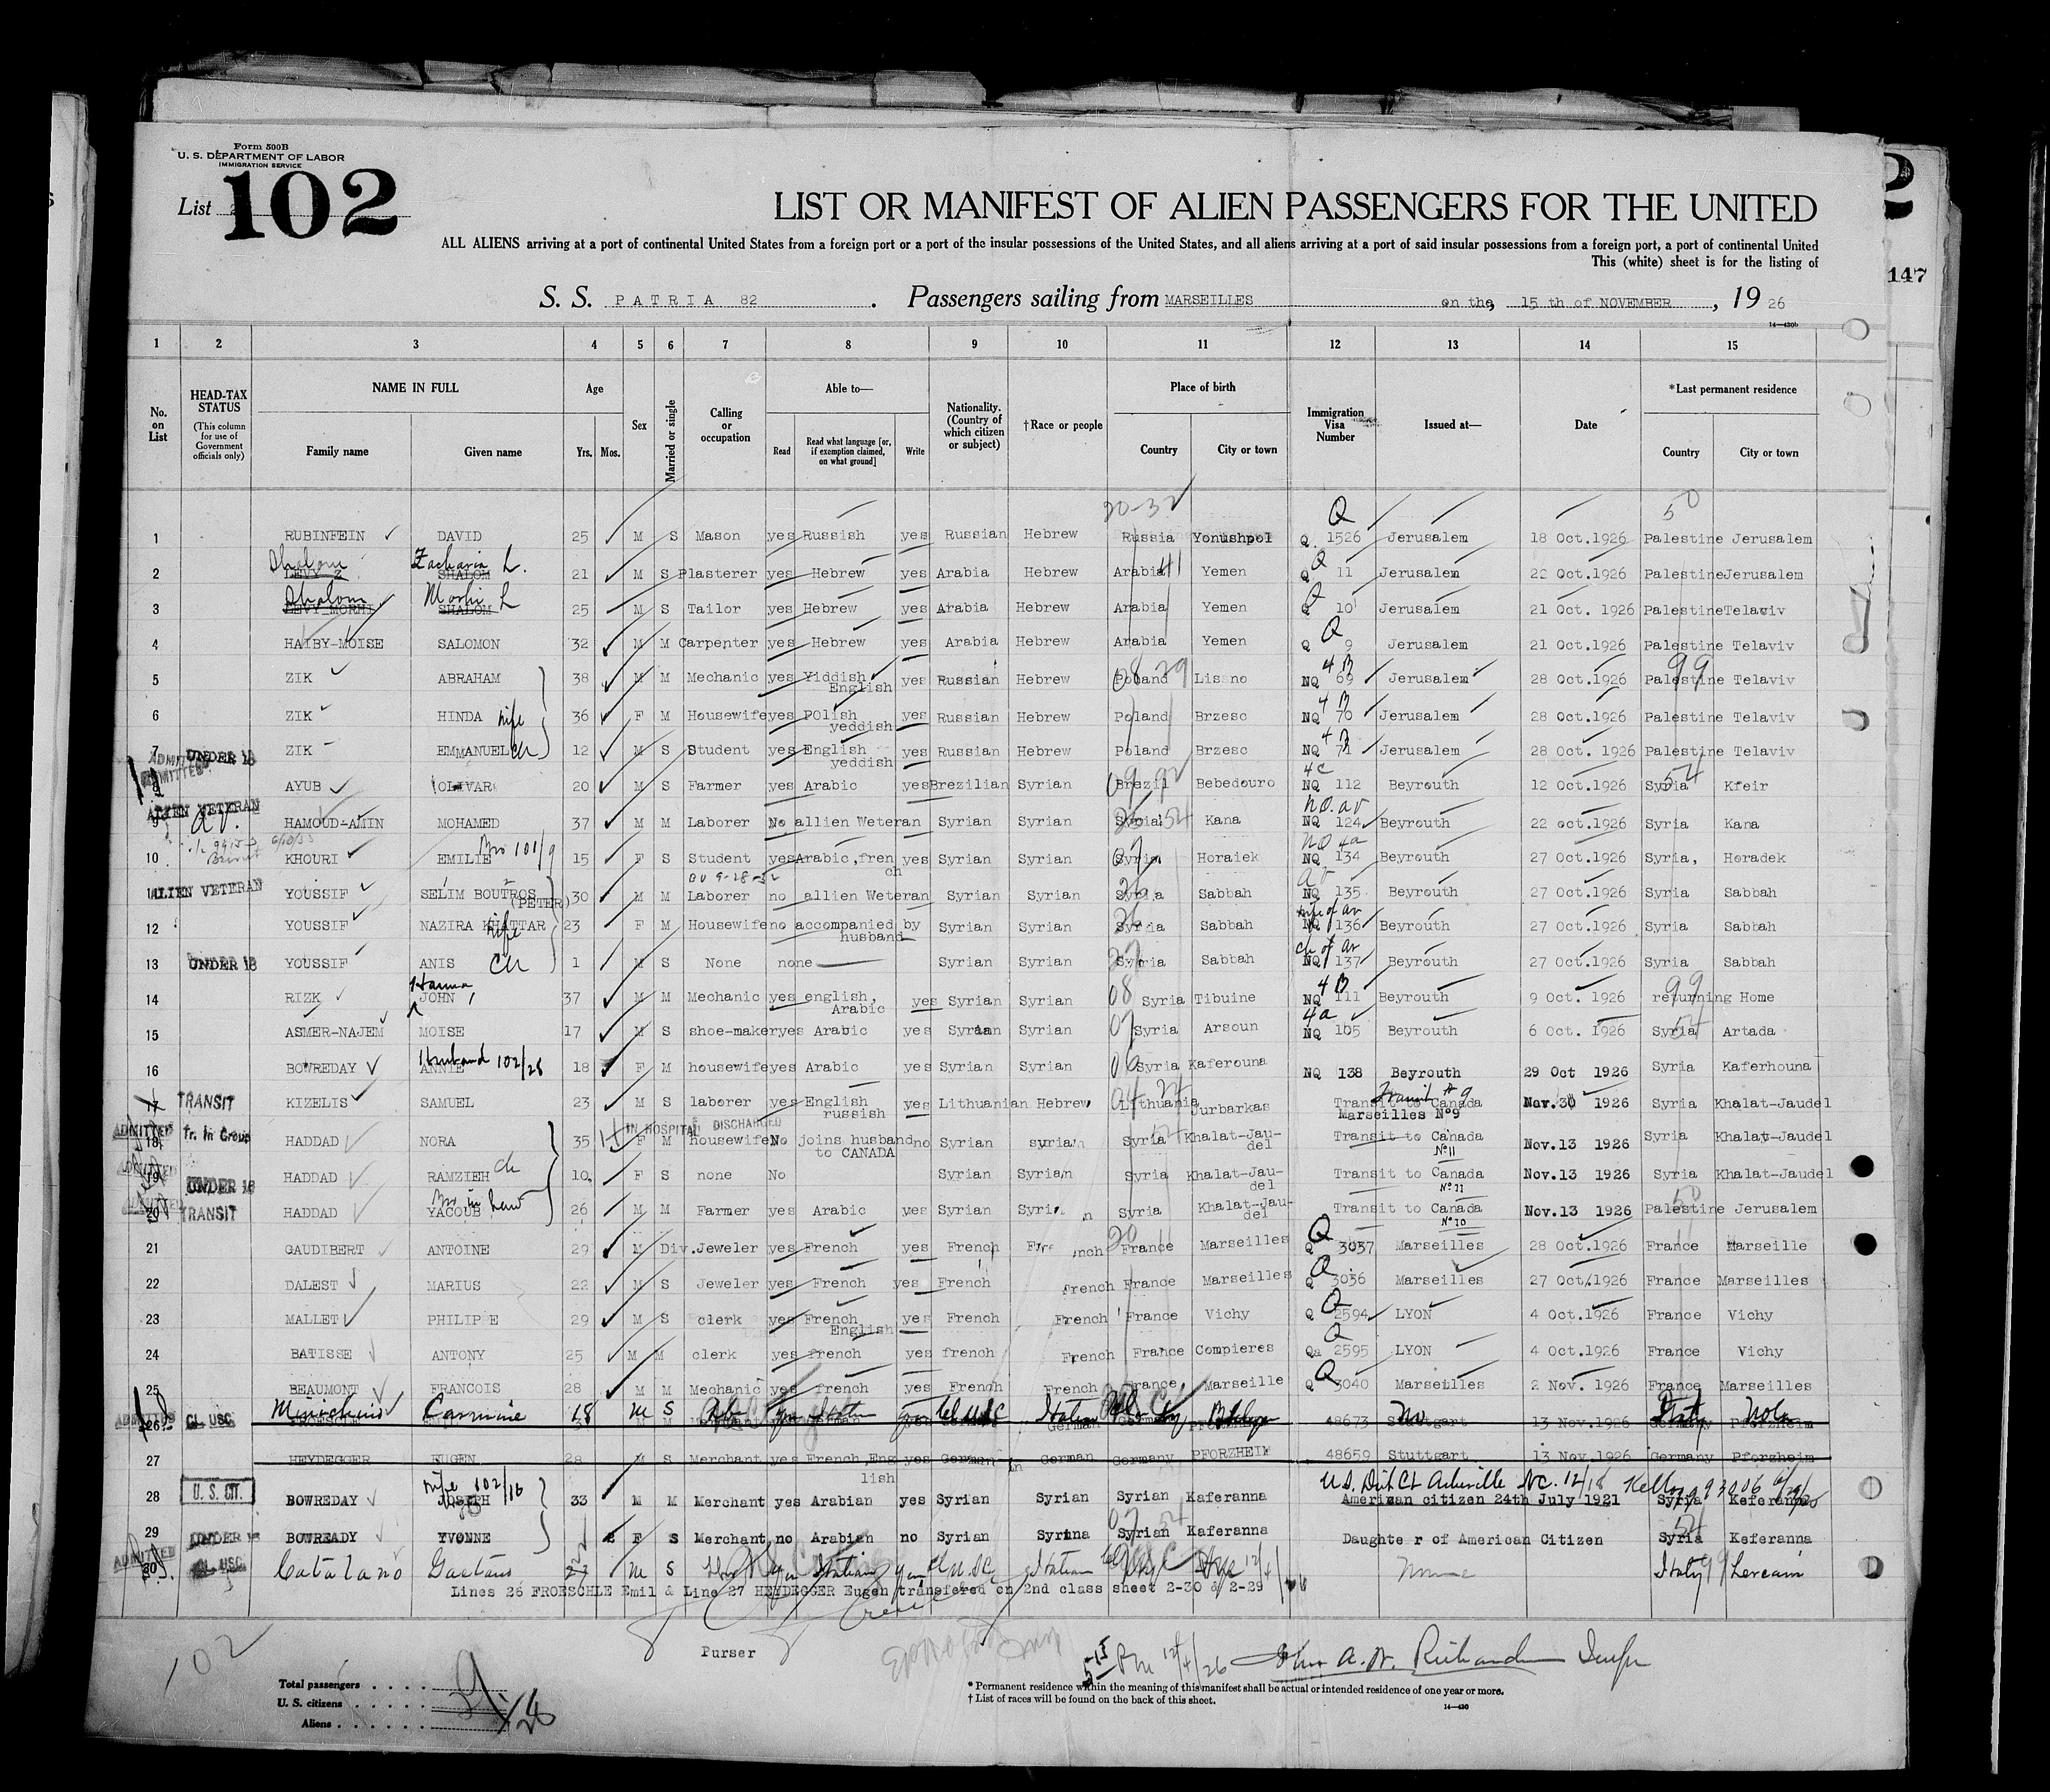 Form 500B
U. S. DEPARTMENT OF LABOR
IMMIGRATION SERVICE
List 102
LIST OR MANIFEST OF ALIEN PASSENGERS FOR THE UNITED
ALL ALIENS arriving at a port of continental United States from a foreign port or a port of the insular possessions of the United States, and all aliens arriving at a port of said insular possessions from a foreign port, a port of continental United
This (white) sheet is for the listing of
147
S. S. PATRIA 82 . Passengers sailing from MARSEILLES on the, 15 th of NOVEMBER , 19 26
14—430b
1 2 3 4 5 6 7 8 9 10 11 12 13 14 15
No. on List
HEAD-TAX STATUS (This column for use of Government officials only)
NAME IN FULL Family name Given name
Age Yrs. Mos.
Sex
Married or single
Calling or occupation
Able to— Read Read what language [or, if exemption claimed, on what ground] Write
Nationality. (Country of which citizen or subject)
†Race or people
Place of birth Country City or town
Immigration Visa Number
Issued at—
Date
*Last permanent residence Country City or town
20-32 Q 50
1 RUBINFEIN DAVID 25 M S Mason yes Russish yes Russian Hebrew Russia Yonushpol Q 1526 Jerusalem 18 Oct.1926 Palestine Jerusalem
Shalom Zacharia L.
2 LEVY Z SHALOM 21 M S Plasterer yes Hebrew yes Arabia Hebrew Arabia Yemen Q 11 Jerusalem 22 Oct.1926 Palestine Jerusalem
Shalom Moshi L
3 LEVY MORHI SHALOM 25 M S Tailor yes Hebrew yes Arabia Hebrew Arabia Yemen Q 10 Jerusalem 21 Oct. 1926 Palestine Telaviv
4 HAIBY-MOISE SALOMON 32 M M Carpenter yes Hebrew yes Arabia Hebrew Arabia Yemen Q 9 Jerusalem 21 Oct.1926 Palestine Telaviv
5 ZIK ABRAHAM 38 M M Mechanic yes Yiddish English yes Russian Hebrew Poland Lissno NQ 69 4 B Jerusalem 28 Oct.1926 Palestine Telaviv 99
6 ZIK HINDA wife 36 F M Housewife yes POlish yeddish yes Russian Hebrew Poland Brzesc NQ 70 4 B Jerusalem 28 Oct.1926 Palestine Telaviv
7 UNDER 18 ZIK EMMANUEL ch 12 M S Student yes English yeddish yes Russian Hebrew Poland Brzesc NQ 71 4 B Jerusalem 28 Oct. 1926 Palestine Telaviv
ADMITTED
8 AYUB OLIVAR 20 M S Farmer yes Arabic yes Brezilian Syrian Brezil Bebedouro NQ 112 4c Beyrouth 12 Oct.1926 Syria Kfeir 54
ALIEN VETERAN
9 a v. HAMOUD-AMIN MOHAMED 37 M M Laborer No allien Weteran Syrian Syrian Syria Kana NQ 124 NQ. av Beyrouth 22 oct.1926 Syria Kana
10 KHOURI EMILIE Bro 101/9 15 F S Student yes Arabic,french yes Syrian Syrian Syria Horaiek NQ 134 NQ 4a Beyrouth 27 Oct.1926 Syria, Horadek
11 ALIEN VETERAN YOUSSIF SELIM BOUTROS (PETER) 30 M M Laborer no allien Weteran Syrian Syrian Syria Sabbah NQ 135 av Beyrouth 27 Oct.1926 Syria Sabbah
12 YOUSSIF NAZIRA KHATTAR wife 23 F M Housewife no accompanied by husband Syrian Syrian Syria Sabbah NQ 136 wife of av Beyrouth 27 Oct.1926 Syria Sabbah
13 UNDER 18 YOUSSIF ANIS ch 1 M S None none Syrian Syrian Syria Sabbah NQ 137 ch of av Beyrouth 27 Oct.1926 Syria Sabbah
14 RIZK JOHN Hanna 37 M M Mechanic yes english, Arabic yes Syrian Syrian 08 Syria Tibuine NQ 111 4 B Beyrouth 9 Oct. 1926 returning Home 99
15 ASMER-NAJEM MOISE 17 M S shoe-maker yes Arabic yes Syrian Syrian Syria Arsoun NQ 105 4a Beyrouth 6 Oct. 1926 Syria Artada
16 BOWREDAY ANNIE Husband 102/28 18 F M housewife yes Arabic yes Syrian Syrian 06 Syria Kaferouna NQ 138 Beyrouth 29 Oct 1926 Syria Kaferhouna
17 TRANSIT KIZELIS SAMUEL 23 M S laborer yes English russish yes Lithuanian Hebrew Lithuania Jurbarkas Transit to Canada Marseilles N°9 Transit # 9 Nov.30 1926 Syria Khalat-Jaudel
IN HOSPITAL DISCHARGED
18 ADMITTED Tr. in Group HADDAD NORA 35 F M housewife No joins husband to CANADA no Syrian syrian Syria Khalat-Jaudel Transit to Canada N°11 Nov.13 1926 Syria Khalat-Jaudel
19 ADMITTED UNDER 18 HADDAD RAMZIEH ch 10 F S none No Syrian Syrian Syria Khalat-Jaudel Transit to Canada N°11 Nov.13 1926 Syria Khalat-Jaudel
20 ADMITTED TRANSIT HADDAD YACOUB Bro in law 26 M M Farmer yes Arabic yes Syrian Syrian Syria Khalat-Jaudel Transit to Canada N°10 Nov.13 1926 Palestine Jerusalem 50
21 GAUDIBERT ANTOINE 29 M Div. Jeweler yes French yes French French France Marseilles Q 3037 Marseilles 28 Oct.1926 France Marseille
22 DALEST MARIUS 22 M S Jeweler yes French yes French french France Marseilles Q 3036 Marseilles 27 Oct.1926 France Marseilles
23 MALLET PHILIPPE 29 M S clerk yes French English yes French French France Vichy Q 2594 LYON 4 Oct.1926 France Vichy
24 BATISSE ANTONY 25 M M clerk yes french yes french French France Compieres Qa 2595 LYON 4 Oct.1926 France Vichy
25 BEAUMONT FRANCOIS 28 M M Mechanic yes french yes French French France, Marseille Q 3040 Marseilles 2 Nov. 1926 France Marseilles
26 ADMITTED CL USC Carmine 18 M S Cl USC Italian 48673 Stuttgart 13 Nov.1926 Germany Pforzheim Italy Nola
27 HEYDEGGER EUGEN 28 M S Merchant yes French,English yes German German Germany PFORZHEIM 48659 Stuttgart 13 Nov.1926 Germany Pforzheim
U.S. Dist Ct Asheville N.C. 12/18
28 U. S. CIT. BOWREDAY JOSEPH wife 102/16 33 M M Merchant yes Arabian yes Syrian Syrian Syrian Kaferanna American citizen 24th July 1921 Syria Keferanna
29 UNDER 18 BOWREADY YVONNE 2 F S Merchant no Arabian no Syrian Syrina Syrian Kaferanna Daughter of American Citizen Syria Keferanna 54
30 ADMITTED CL. USC. Catalano Gaetano 22 M S Italian Cl USC Italian None Italy
Lines 26 FROESCHLE Emil & Line 27 HEYDEGGER Eugen transfered on 2nd class sheet 2-30 & 2-29
102
Purser
5 15 PM 12/4/26 John A. W. Richardson Insp
Total passengers
U. S. citizens
Aliens
* Permanent residence within the meaning of this manifest shall be actual or intended residence of one year or more.
† List of races will be found on the back of this sheet.
14—430